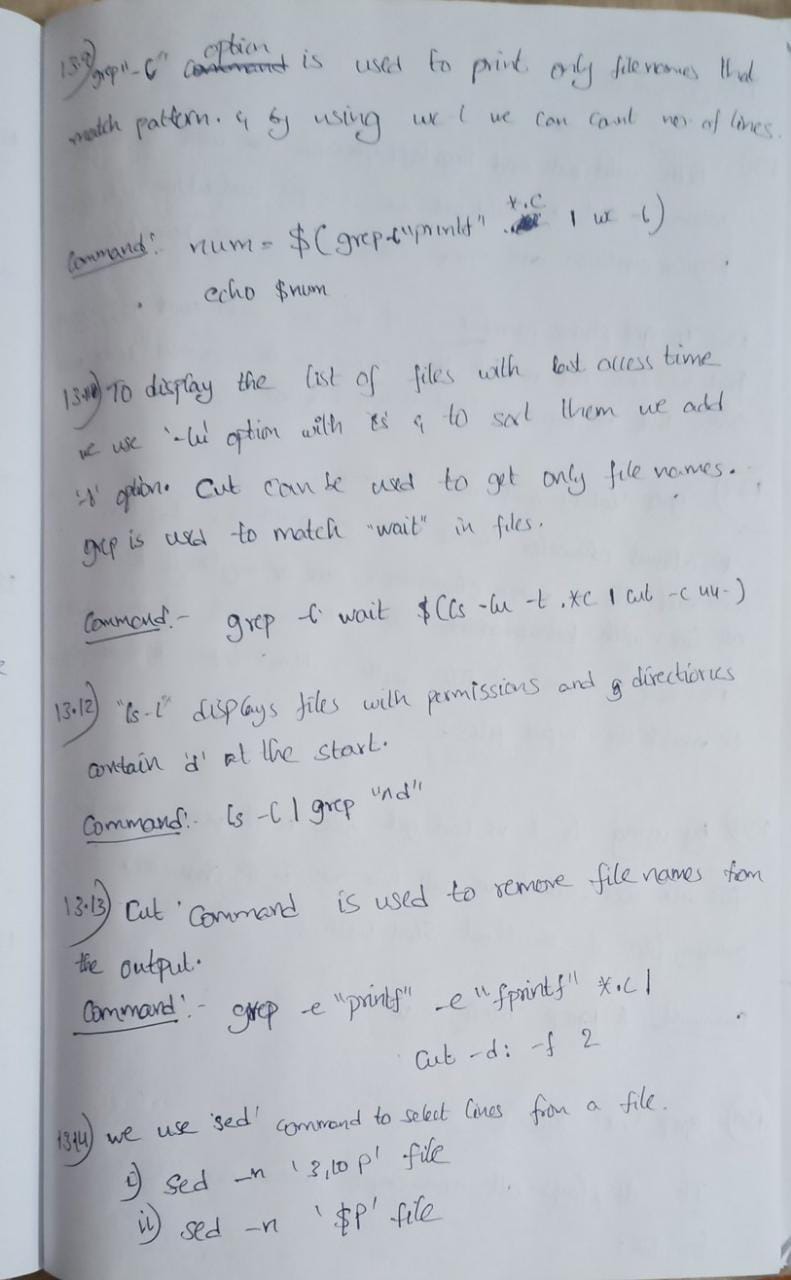 13.9) grep "-l" command option is used to print only filenames that
match pattern. & by using wc l we can count no. of lines.
Command:- num = $(grep -l "printf" *.c | wc -l)
echo $num
13.10) To display the list of files with last access time
we use '-lu' option with ls & to sort them we add
'-t' option. Cut can be used to get only file names.
grep is used to match "wait" in files.
Command:- grep -l wait $(ls -lu -t .*c | cut -c 44-)
13.12) "ls-l" displays files with permissions and directiories
contain 'd' at the start.
Command:- ls -l | grep "^d"
13.13) Cut Command is used to remove file names from
the output.
Command:- grep -e "printf" -e "fprintf" *.c |
Cut -d: -f 2
13.14) we use 'sed' command to select lines from a file.
i) sed -n '3,10 p' file
ii) sed -n '$p' file